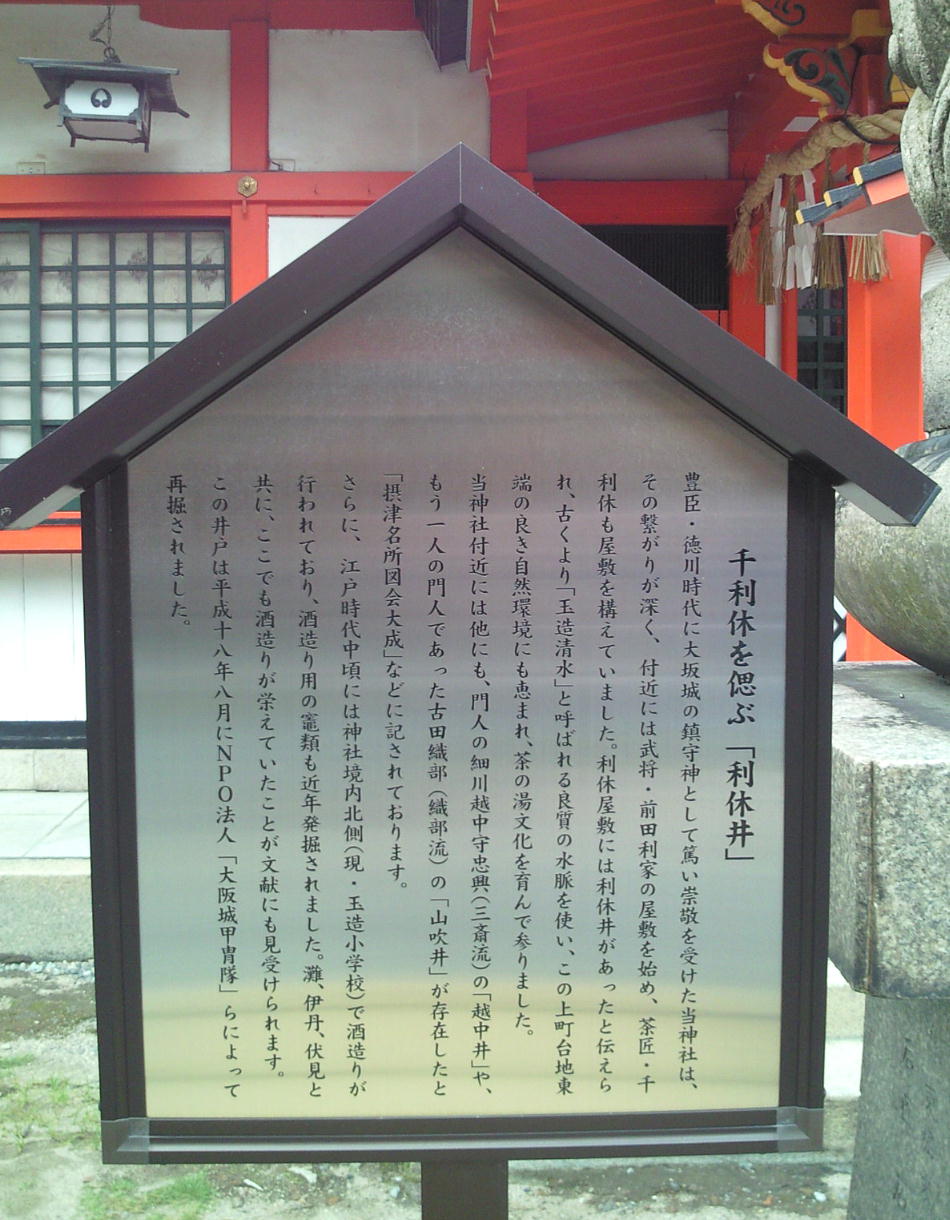 千利休を偲ぶ「利休井」
豊臣・徳川時代に大坂城の鎮守神として篤い崇敬を受けた当神社は、
その繋がりが深く、付近には武将・前田利家の屋敷を始め、茶匠・千
利休も屋敷を構えていました。利休屋敷には利休井があったと伝えら
れ、古くより「玉造清水」と呼ばれる良質の水脈を使い、この上町台地東
端の良き自然環境にも恵まれ、茶の湯文化を育んで参りました。
当神社付近には他にも、門人の細川越中守忠興（三斎流）の「越中井」や、
もう一人の門人であった古田織部（織部流）の「山吹井」が存在したと
「摂津名所図会大成」などに記されております。
さらに、江戸時代中頃には神社境内北側（現・玉造小学校）で酒造りが
行われており、酒造り用の竈類も近年発掘されました。灘、伊丹、伏見と
共に、ここでも酒造りが栄えていたことが文献にも見受けられます。
この井戸は平成十八年八月にNPO法人「大阪城甲冑隊」らによって
再掘されました。